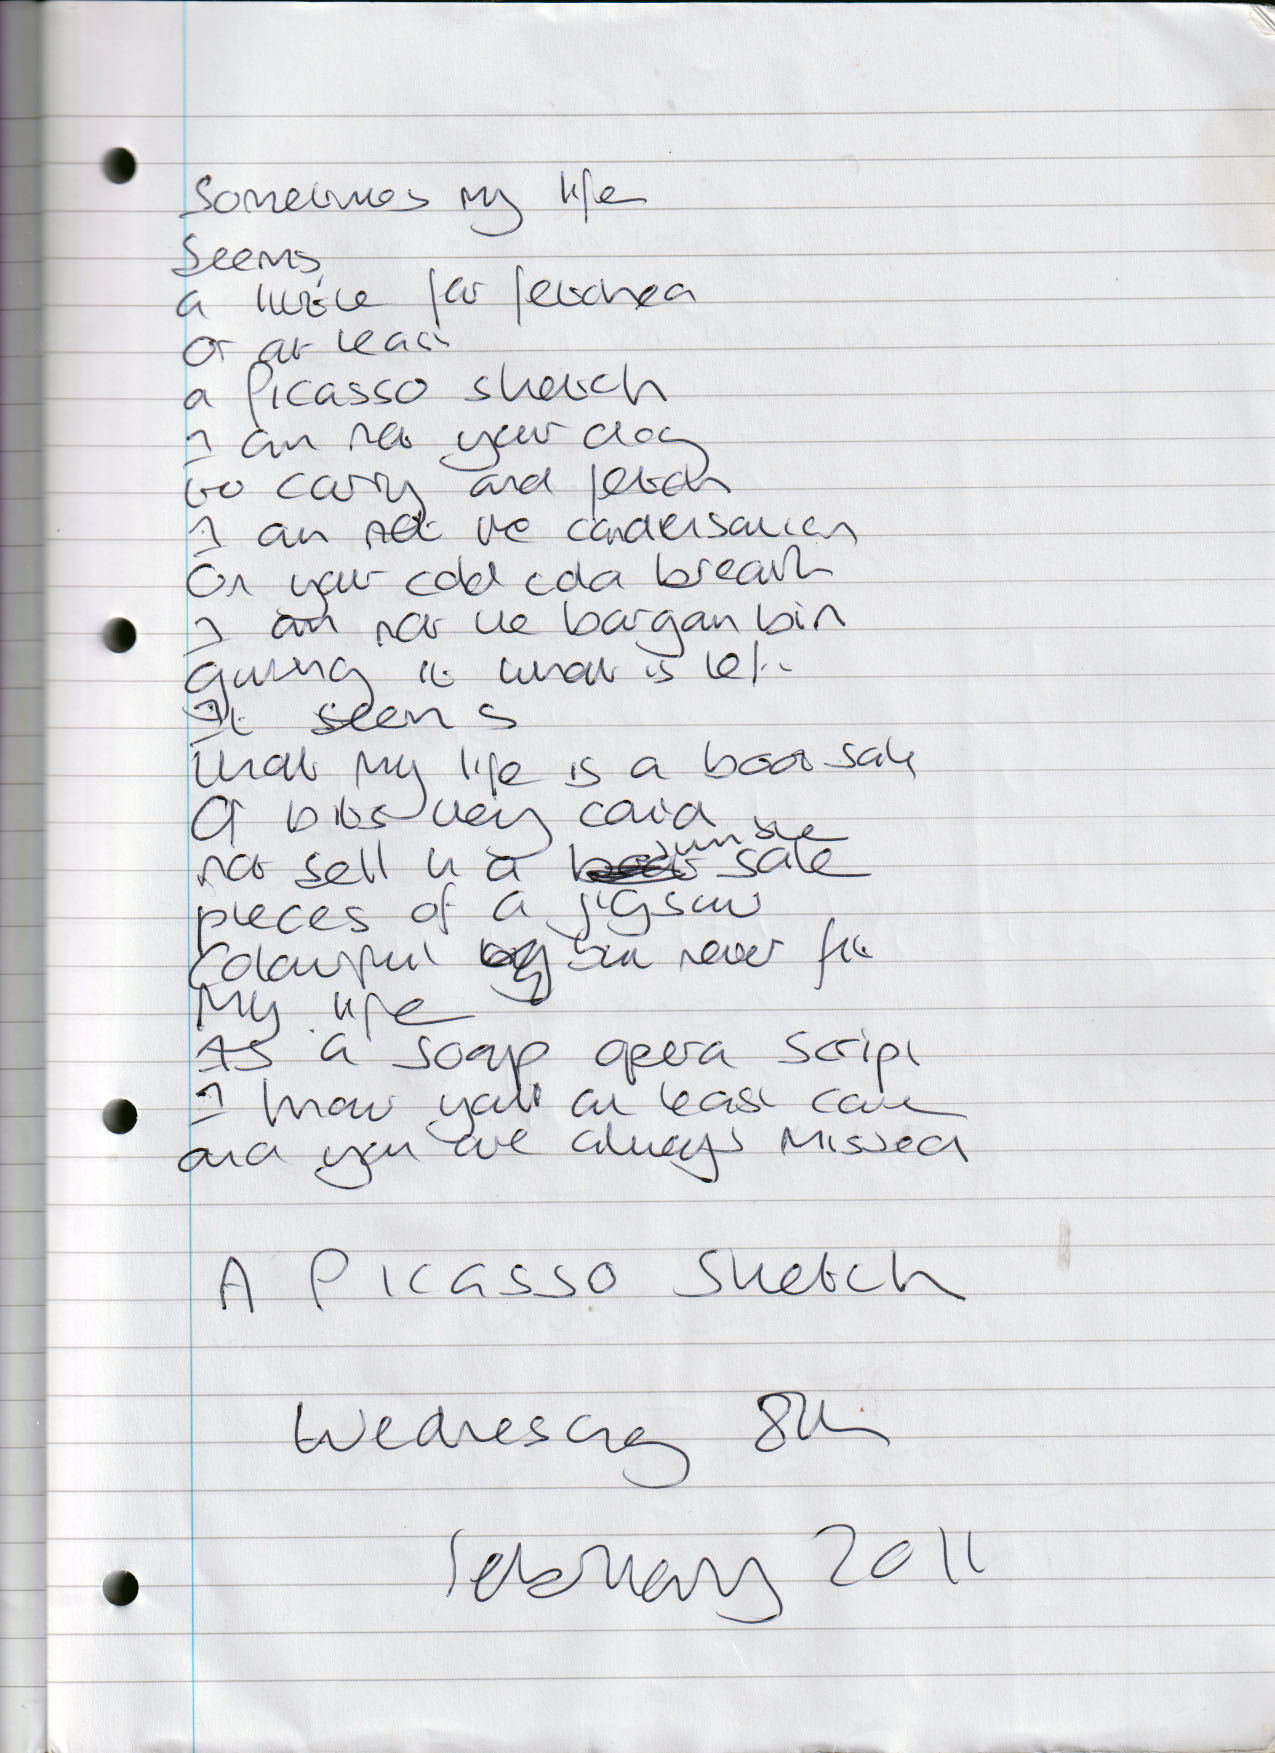 Sometimes my life
Seems
a little far fetched
or at least
a Picasso sketch
I am not your dog
to carry and fetch
I am not the condensation
On your cold cold breath
I am not the bargan bin
giving it what is left
It seems
that my life is a boot sale
Of bits very
not sell in a jumble sale
pieces of a jigsaw
Colourful but never fit
My life
As a soap opera script
I know you at least care
and you are always missed
A Picasso Sketch
Wednesday 8th
February 2011